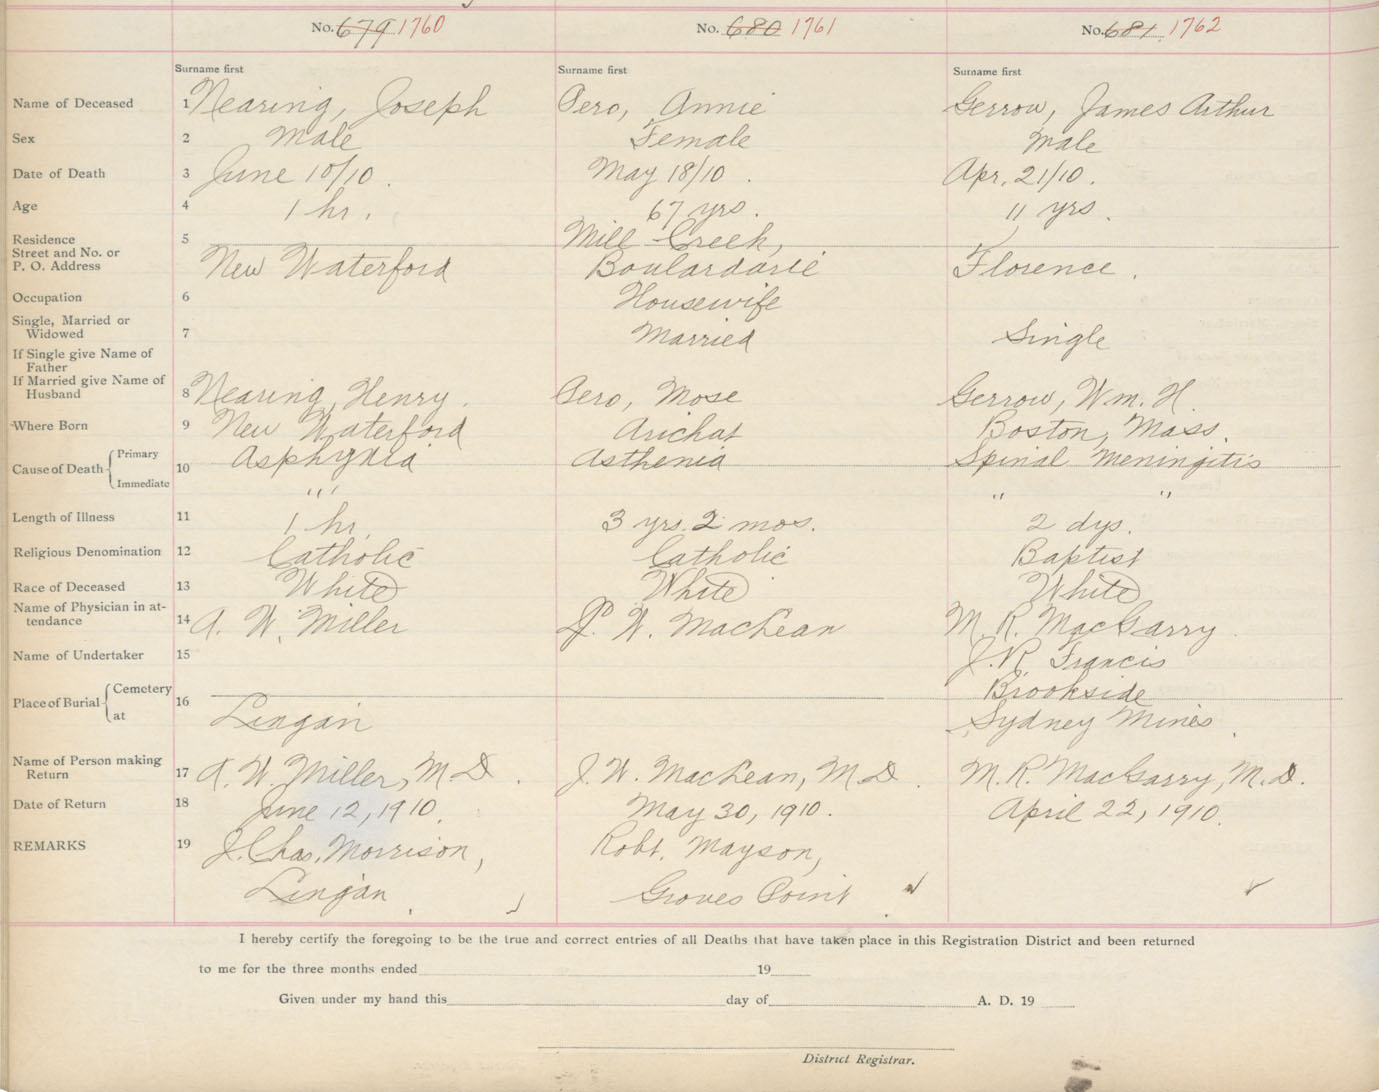 No. 679 1760 No. 680 1761 No. 681 1762
Surname first Surname first Surname first
Name of Deceased 1 Nearing, Joseph Pero, Annie Gerrow, James Arthur
Sex 2 Male Female Male
Date of Death 3 June 10/10. May 18/10. Apr. 21/10.
Age 4 1 hr. 67 yrs. 11 yrs.
Residence 5 Mill Creek,
Street and No. or
P. O. Address New Waterford Boulardarie Florence.
Occupation 6 Housewife
Single, Married or
Widowed 7 Married Single
If Single give Name of
Father
If Married give Name of
Husband 8 Nearing, Henry. Pero, Mose Gerrow, Wm. H.
Where Born 9 New Waterford Arichat Boston, Mass.
Cause of Death Primary 10 Asphyxia Asthenia Spinal Meningitis
Immediate " " " "
Length of Illness 11 1 hr. 3 yrs. 2 mos. 2 dys.
Religious Denomination 12 Catholic Catholic Baptist
Race of Deceased 13 White White White
Name of Physician in at-
tendance 14 A. W. Miller J. W. MacLean M. R. MacGarry
Name of Undertaker 15 J. R. Francis
Place of Burial Cemetery 16 Brookside
at Lingan Sydney Mines
Name of Person making
Return 17 A. W. Miller, M D. J. W. MacLean, M. D. M. R. MacGarry, M. D.
Date of Return 18 June 12, 1910. May 30, 1910. April 22, 1910.
REMARKS 19 J. Chas. Morrison, Robt. Mayson,
Lingan Groves Point
I hereby certify the foregoing to be the true and correct entries of all Deaths that have taken place in this Registration District and been returned
to me for the three months ended 19
Given under my hand this day of A. D. 19
District Registrar.